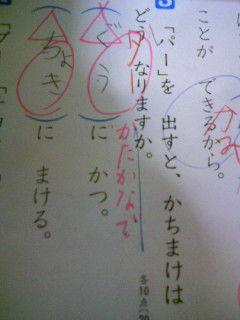 ことが できるから。
「パー」を 出すと、かちまけは
どうなりますか。
かたかなで
(ぐう)に かつ。
(ちょき)に まける。
各10点